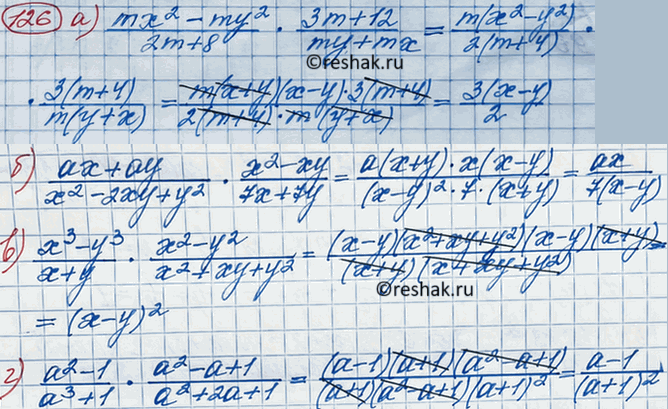 126 а) (mx² - my²)/(2m+8) · (3m+12)/(my+mx) = m(x²-y²)/2(m+4) ·
©reshak.ru
· 3(m+4)/m(y+x) = m(x+y)(x-y)·3(m+4)/2(m+4)·m(y+x) = 3(x-y)/2
б) (ax+ay)/(x²-2xy+y²) · (x²-xy)/(7x+7y) = a(x+y)·x(x-y)/(x-y)²·7·(x+y) = ax/7(x-y)
в) (x³-y³)/(x+y) · (x²-y²)/(x²+xy+y²) = (x-y)(x²+xy+y²)(x-y)(x+y)/(x+y)(x²+xy+y²) =
©reshak.ru
= (x-y)²
г) (a²-1)/(a³+1) · (a²-a+1)/(a²+2a+1) = (a-1)(a+1)(a²-a+1)/(a+1)(a²-a+1)(a+1)² = (a-1)/(a+1)²